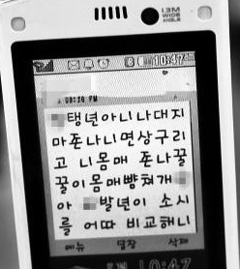 1.3M
WIDE
ANGLE
10:47
08:20 PM
탱년아니나대지
마존나니면상구리
고 니몸매 존나꿀
꿀이몸매뺨쳐개
아 발년이 소시
를 어따 비교해니
메뉴 답장 삭제
10:47